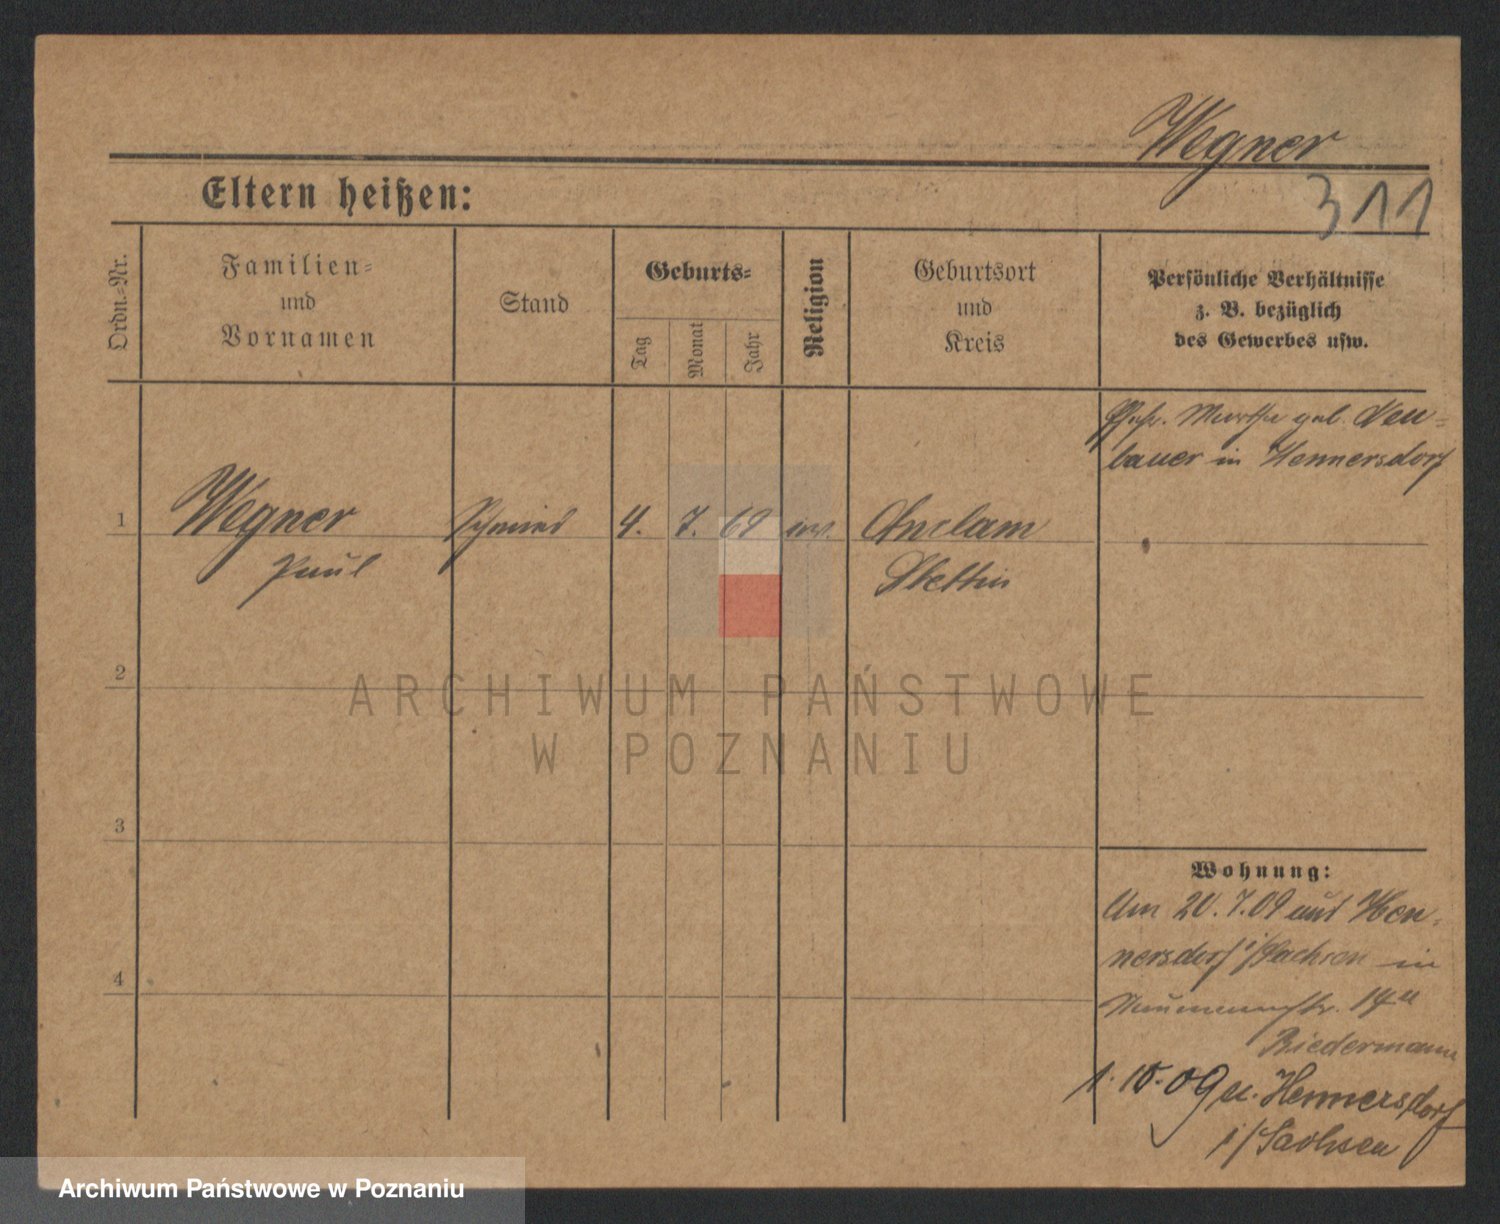 Wegner
311
Eltern heißen:
Ordn.-Nr.
Familien-
und
Vornamen
Stand
Geburts-
Tag
Monat
Jahr
Religion
Geburtsort
und
Kreis
Persönliche Verhältnisse
z. B. bezüglich
des Gewerbes usw.
Ehefr. Marthe geb. Neu-
bauer in Hennersdorf
1
Wegner
Schmied
4.
7.
69
ev.
Anclam
Paul
Stettin
2
ARCHIWUM PAŃSTWOWE
W POZNANIU
3
Wohnung:
Am 20.7.09 aus Hen-
nersdorf i/Sachsen in
4
Naumannstr. 14
Biedermann
1.10.09 n. Hennersdorf
i/Sachsen
Archiwum Państwowe w Poznaniu